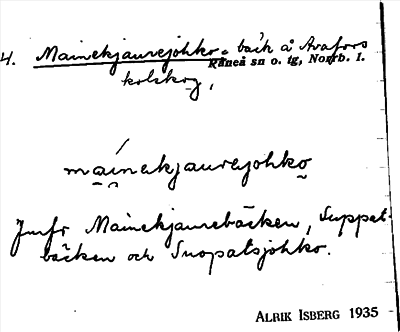 4. Mainekjaurejohko. bäck å Avafors
Råneå sn o. tg, Norrb. l.
kolskog,
mainekjaurejohko
Jmfr Mainekjaurebäcken, Suppat-
bäcken och Snopatsjohko.
ALRIK ISBERG 1935